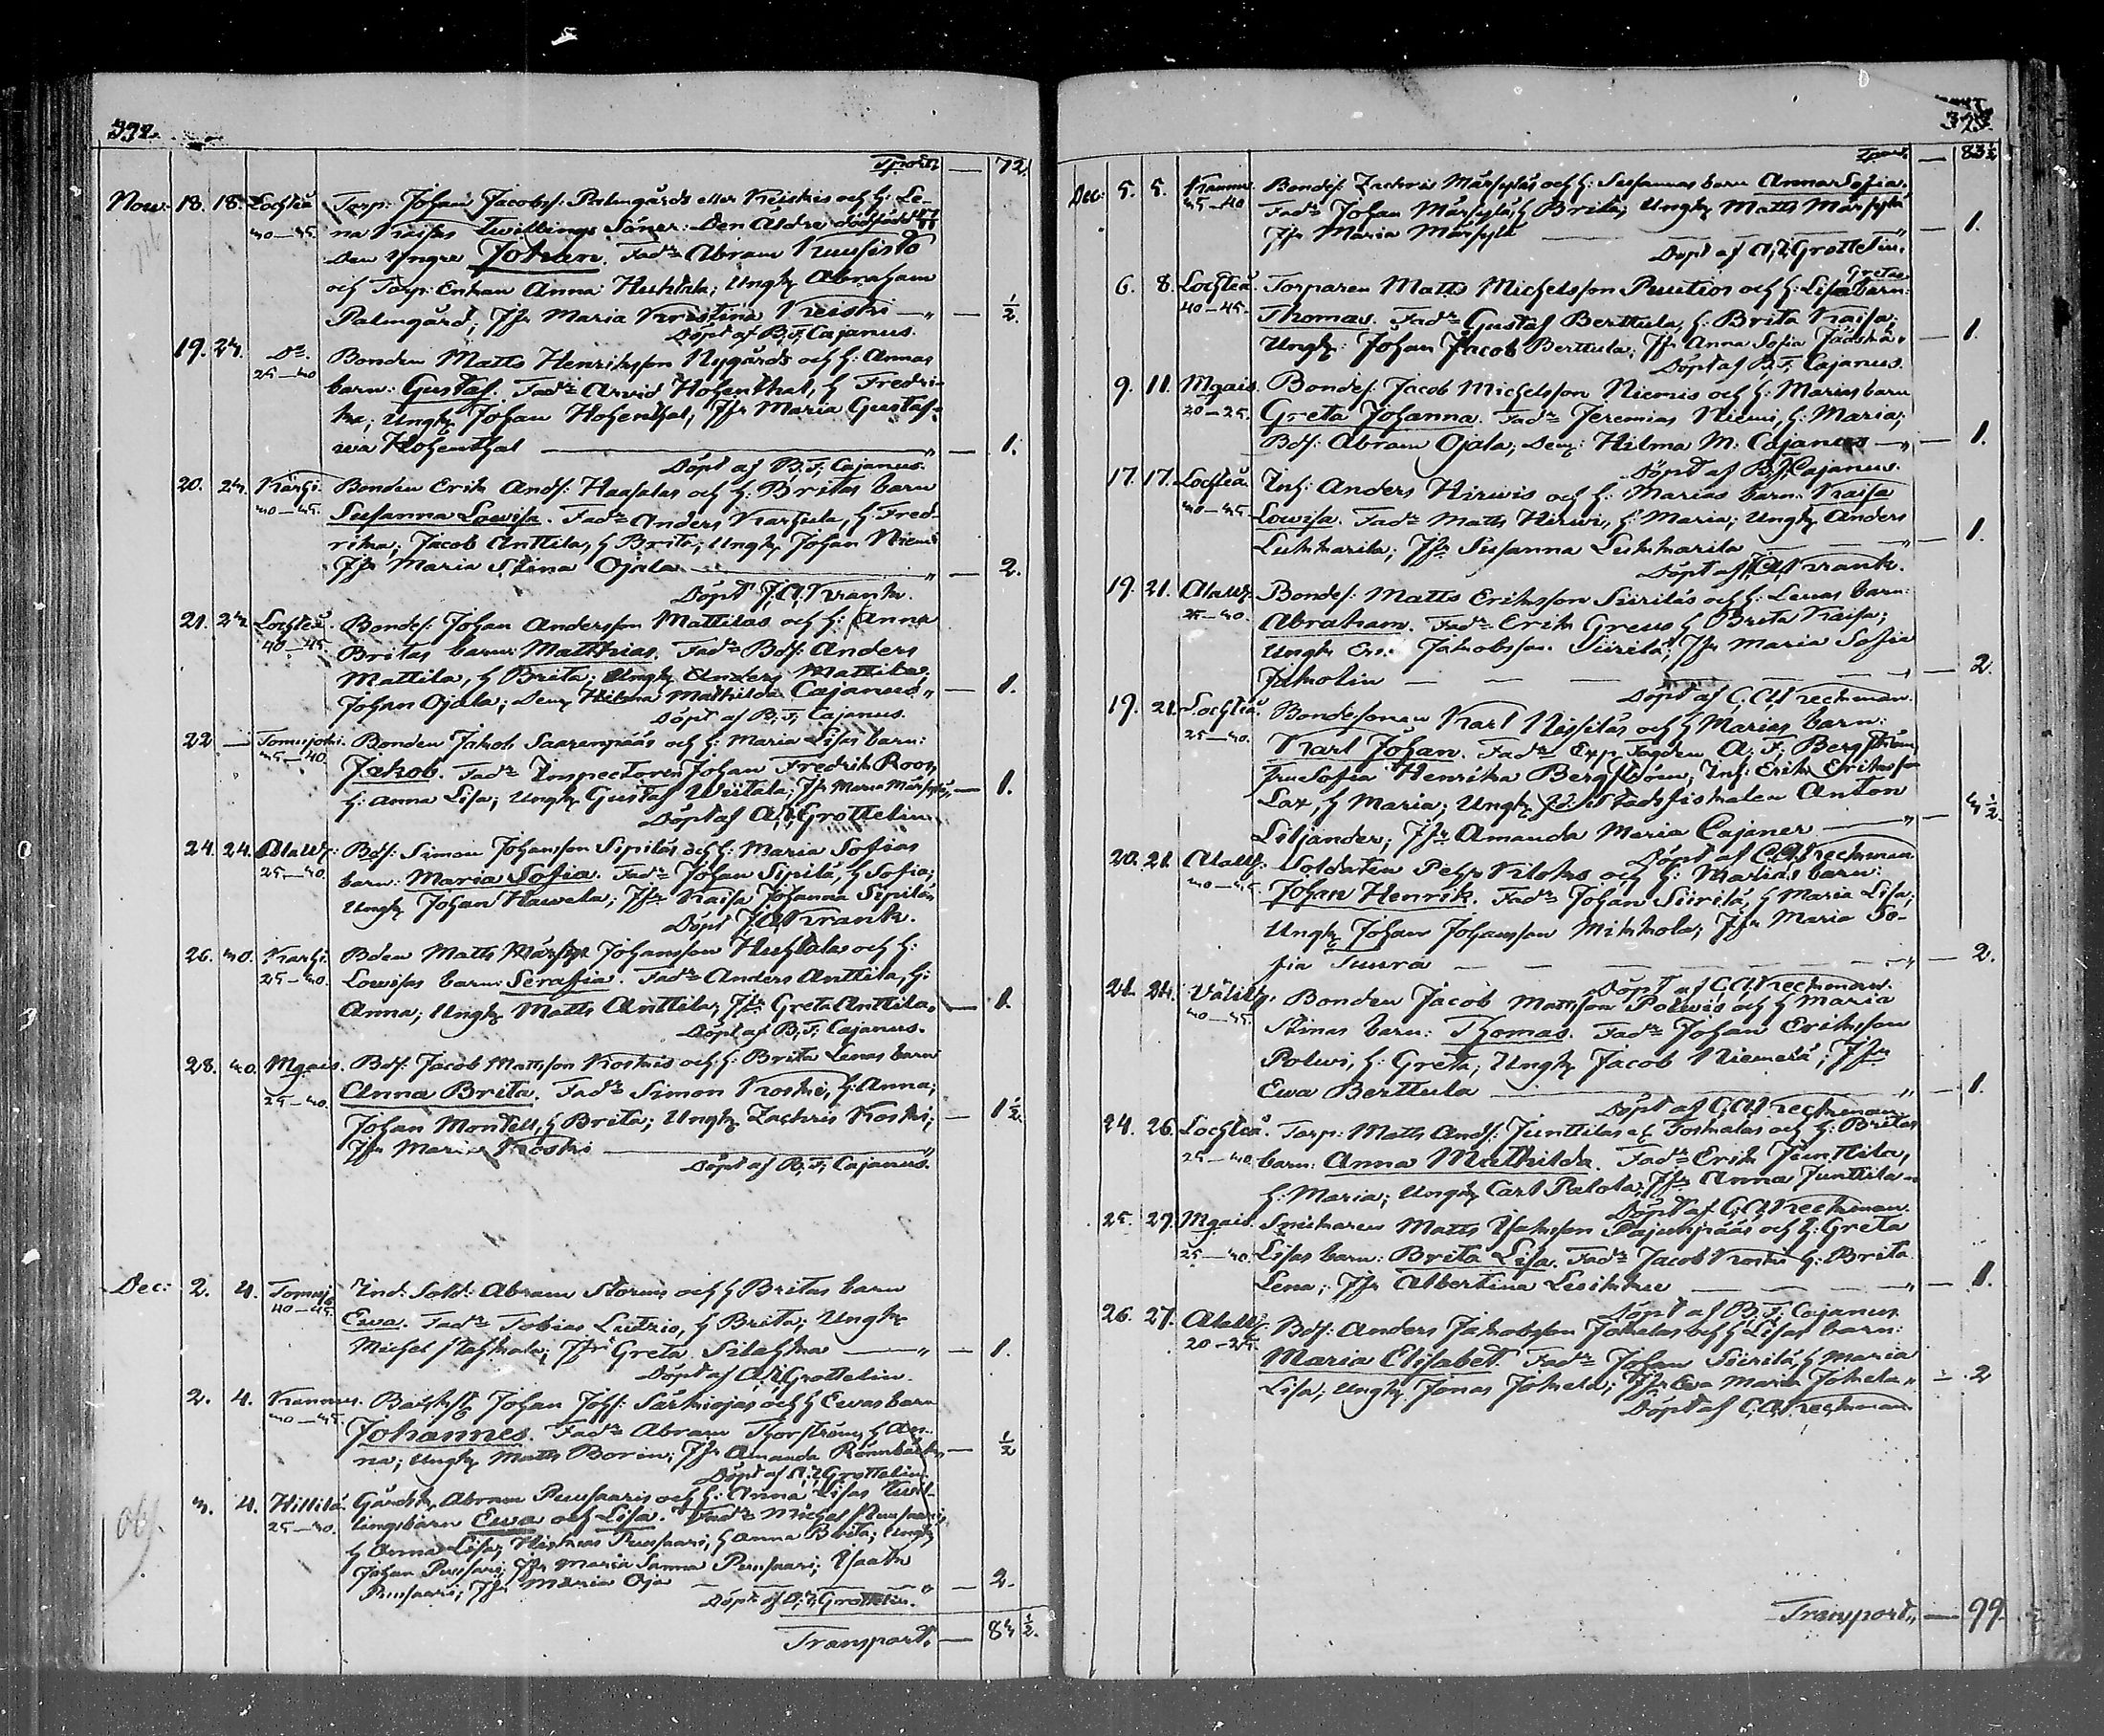 392.
Transp. — 72.
Nov: 18. 18. Lochteå Torp: Johan Jacobs: Palmgårds eller Keiskis och h: Le-
40—45. na Kaisas Twillings Söner. Den Äldre dödfödd
Den Yngre Johan. Faddr Abram Kuusisto
och Torp: Enkan Anna Huhtala; Ungk Abraham
Palmgård, Jfr Maria Kristina Keiski — „ — ½.
Döpt af B. F. Cajanus.
19. 24. Do. Bonden Matts Henriksson Nygårds och h: Annas
barn: Gustaf. Faddr Arvid Hohenthal, h Fredri-
ka; Ungk Johan Hohenthal, Jfr Maria Gustaf-
wa Hohenthal — „ — 1.
Döpt af B. F. Cajanus.
20. 24. Kärhi. Bonden Erik Ands: Haapalas och h: Britas barn
40—45. Susanna Lowisa. Faddr Anders Karhula, h Fred-
rika; Jacob Anttila, h Brita; Ungk Johan Niemi
Jfr Maria Stina Ojala — „ — 2.
Döpt J. A. Krank.
21. 24. Lochteå. Bondes: Johan Andersson Mattilas och h: Anna
40—45. Britas barn: Matthias. Faddr Bds: Anders
Mattila, h Brita; Ungk Anders Mattila;
Johan Ojala; Demz Helena Mathilda Cajanus „ — 1.
Döpt af B. F. Cajanus.
22 — Tomujoki. Bonden Jakob Saarenpääs och h: Maria Lisas barn:
35—40. Jakob. Faddr Inspectoren Johan Fredrik Roos,
h: Anna Lisa; Ungk Gustaf Wiitala; Jfr Maria Märsylä „ — 1.
Döpt af A. Z. Grottelin.
24. 24. Alawj: Bds: Simon Johansson Sipiläs och h: Maria Sofias
25—30. barn: Maria Sofia. Faddr Johan Sipilä, h Sofia;
Ungk Johan Hawela; Jfr Kaisa Johanna Sipilä
Döpt J. A. Krank.
26. 30. Karhi. Bden Matts Johansson Huhtalas och h:
25—30. Lowisas barn: Serafia. Faddr Anders Anttila, h:
Anna; Ungk Matts Anttila, Jfr Greta Anttila „ — 1.
Döpt af B. F. Cajanus.
28. 30. Mgais. Bds: Jacob Mattsson Koskis och h: Brita Lenas barn
25—30. Anna Brita. Faddr Simon Koski, h: Anna;
Johan Montell, h Brita; Ungk Zachris Koski; — 1 ½.
Jfr Maria Koski — „
Döpt af B. F. Cajanus.
Dec: 2. 4. Tomujo Ind: Sold: Abram Storms och h Britas barn
40—45. Ewa. Faddr Tobias Leitzio, h Brita; Ungk
Michel Stahlhala; Jfr Greta Silahka — „ — 1.
Döpt af A. Z. Grottelin.
2. 4. Kannus. Johan Johs: Särkiojas och h Ewas barn
40—45. Johannes. Faddr Abram Thorström, h An-
na; Ungk Matts Borin; Jfr Amanda Rönnbäck „ — ½
Döpt af A. Z. Grottelin.
3. 4. Hillilä. Gårdsk Abram Puusaaris och h: Anna Lisas Twil-
25—30. lingsbarn Ewa och Lisa. Faddr Michel Puusaari,
h Anna Lisa; Puusaari, h Anna Brita; Ungk
Johan Puusaari; Jfr Maria Sanna Puusaari; Isaak
Puusaari; Jfr Maria Oja — „ — 2.
Döpt af A. Z. Grottelin.
Transport. — 83 ½.
Transp. — 83 ½
Dec: 5. 5. Kannus. Bondes: Zachris Märsyläs och h: Susannas barn Anna Sofia.
35—40 Faddr Johan Märsylä, h Brita; Ungk Matts Märsylä
Jfr Maria Märsylä — „ — 1.
Döpt af A. Z. Grottelin.
6. 8. Lochteå. Torparen Matts Michelsson Puutios och h: Lisa Gretas barn:
40—45. Thomas. Faddr Gustaf Berttula, h. Brita Kaisa;
Ungk: Johan Jacob Berttula; Jfr Anna Sofia Jääskä „ — 1.
Döpt af B. F. Cajanus.
9. 11. Mgais. Bondes: Jacob Michelsson Niemis och h: Marias barn
20—25. Greta Johanna. Faddr Jeremias Niemi, h: Maria;
Bds: Abram Ojala, Demz: Hilma M. Cajanus — „ — 1.
Döpt af B. F. Cajanus.
17. 17. Lochteå. Inh: Anders Hirwis och h: Marias barn: Kaisa
40—45. Lowisa. Faddr Matts Hirwi, h: Maria; Ungk Anders
Lukkarila; Jfr Susanna Lukkarila — „ — 1.
Döpt af J. A. Krank.
19. 21. Alawj. Bondes: Matts Eriksson Siiriläs och h: Lenas barn:
25—30. Abraham. Faddr Erik Greus h Brita Kaisa;
Ungk Er: Jakobsson Siirilä; Jfr Maria Sofia
Jakolin — „ — 2.
Döpt af C. A. Keckman.
19. 21. Lochteå. Bondesonen Karl Nissiläs och h Marias barn:
25—30. Karl Johan. Faddr Exp. Fogden A. F. Bergström,
Fru Sofia Henrika Bergström; Inh: Erik Eriksson
Lax, h Maria; Ungk Stadsfiskalen Anton
Liljander; Jfr Amanda Maria Cajaner — „ — 3 ½
Döpt af C. A. Keckman
20. 21. Alawj. Soldaten Pehr Kloks och h: Marias barn:
40—45. Johan Henrik. Faddr Johan Siirilä, h Maria Lisa;
Ungk Johan Johansson Mikkola; Jfr Maria So-
fia Tuura — „ — 2.
Döpt af C. A. Keckman.
21. 24. Väliwj. Bonden Jacob Mattsson Polwis och h Maria
40—45. Stinas barn: Thomas. Faddr Johan Eriksson
Polwi, h: Greta, Ungk Jacob Niemelä; Jfr
Ewa Berttula — „ — 1.
Döpt af C. A. Keckman
24. 26. Lochteå. Torp: Matts Ands: Junttilas el Toskalas och h: Britas
25—30. barn: Anna Mathilda. Faddr Erik Junttila,
h: Maria; Ungk Carl Palola, Jfr Anna Junttila „
Döpt af C. A. Keckman.
25. 27. Mgais. Snickaren Matts Isakson Pajunpääs och h: Greta
25—30. Lisas barn: Brita Lisa. Faddr Jacob Koski h: Brita
Lena; Jfr Albertina Lesikkue — „ — 1.
Döpt af B. F. Cajanus
26. 27. Alawj. Bds: Anders Jakobsson Jokelas och h Lisas barn:
20—25. Maria Elisabet. Faddr Johan Siirilä, h Maria
Lisa; Ungk Jonas Jokela; Jfr Ewa Maria Jokela „ — 2
Döpt af C. A. Keckman.
Transport „ — 99.